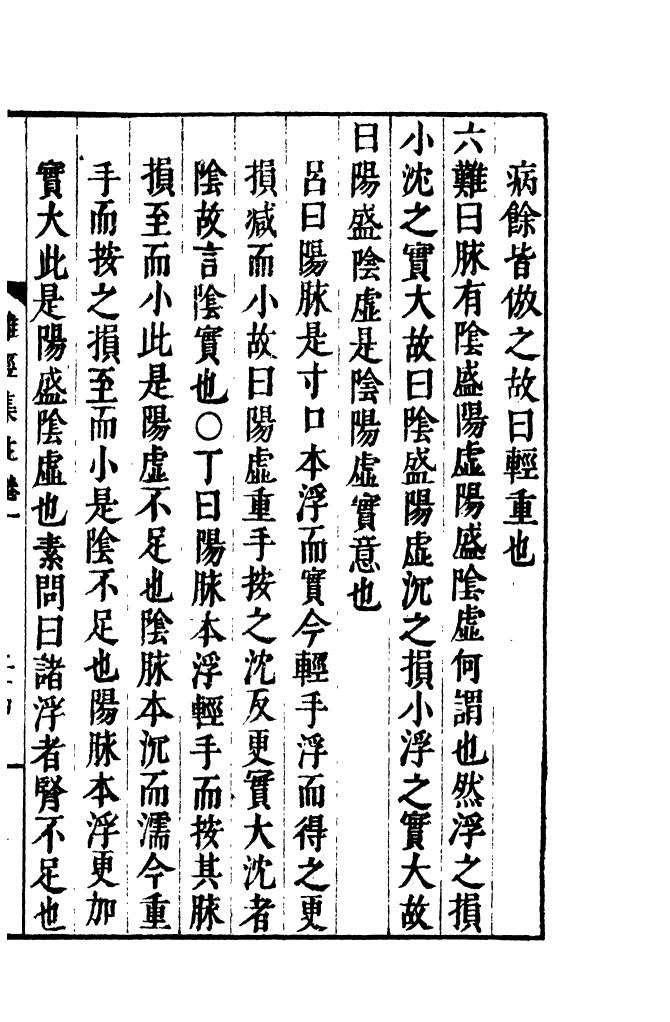 病餘皆倣之故曰輕重也
六難曰脉有陰盛陽虛陽盛陰虛何謂也然浮之損
小沈之實大故曰陰盛陽虛沉之損小浮之實大故
曰陽盛陰虛是陰陽虛實意也
呂曰陽脉是寸口本浮而實今輕手浮而得之更
損減而小故曰陽虛重手按之沈反更實大沈者
陰故言陰實也○丁曰陽脉本浮輕手而按其脉
損至而小此是陽虛不足也陰脉本沉而濡今重
手而按之損至而小是陰不足也陽脉本浮更加
實大此是陽盛陰虛也素問曰諸浮者腎不足也
難經集註卷一